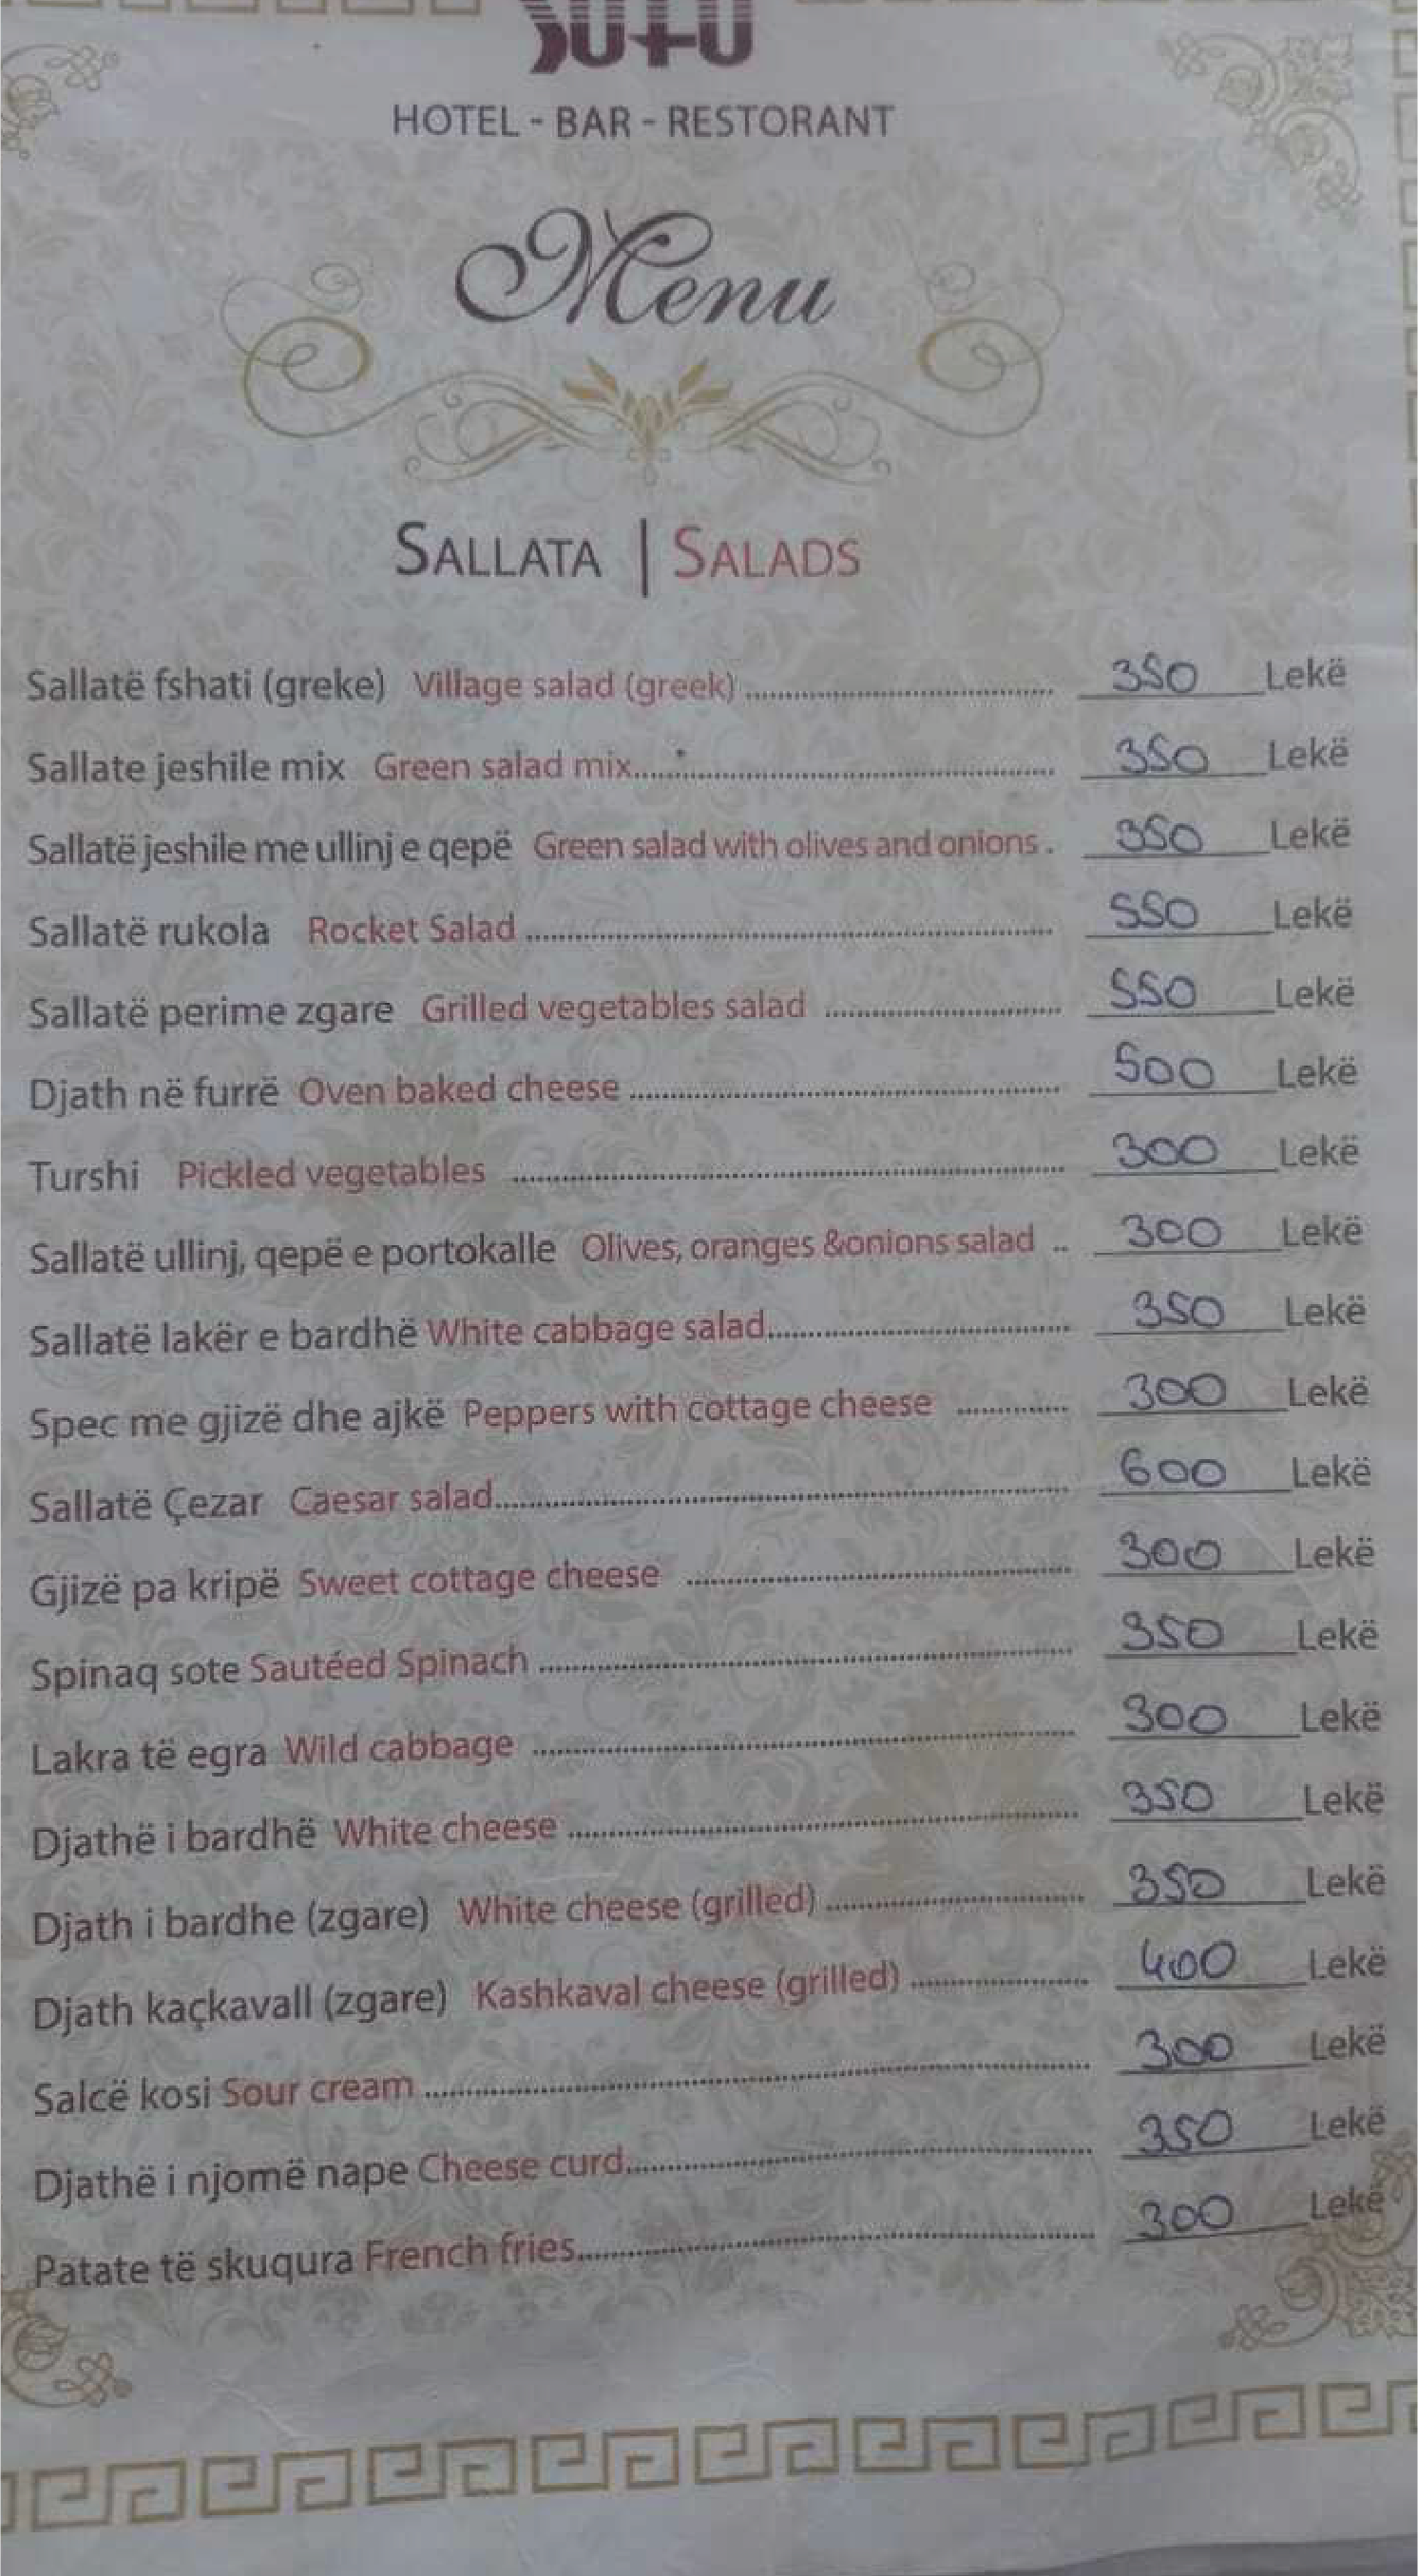 HOTEL - BAR - RESTORANT
Menu
SALLATA | SALADS
Sallatë fshati (greke) Village salad (greek) 350 Lekë
Sallate jeshile mix Green salad mix 350 Lekë
Sallatë jeshile me ullinj e qepë Green salad with olives and onions 350 Lekë
Sallatë rukola Rocket Salad 550 Lekë
Sallatë perime zgare Grilled vegetables salad 550 Lekë
Djath në furrë Oven baked cheese 500 Lekë
Turshi Pickled vegetables 300 Lekë
Sallatë ullinj, qepë e portokalle Olives, oranges &onions salad 300 Lekë
Sallatë lakër e bardhë White cabbage salad 350 Lekë
Spec me gjizë dhe ajkë Peppers with cottage cheese 300 Lekë
Sallatë Çezar Caesar salad 600 Lekë
Gjizë pa kripë Sweet cottage cheese 300 Lekë
Spinaq sote Sautéed Spinach 350 Lekë
Lakra të egra Wild cabbage 300 Lekë
Djathë i bardhë White cheese 350 Lekë
Djath i bardhe (zgare) White cheese (grilled) 350 Lekë
Djath kaçkavall (zgare) Kashkaval cheese (grilled) 400 Lekë
Salcë kosi Sour cream 300 Lekë
Djathë i njomë nape Cheese curd 350 Lekë
Patate të skuqura French fries 300 Lekë